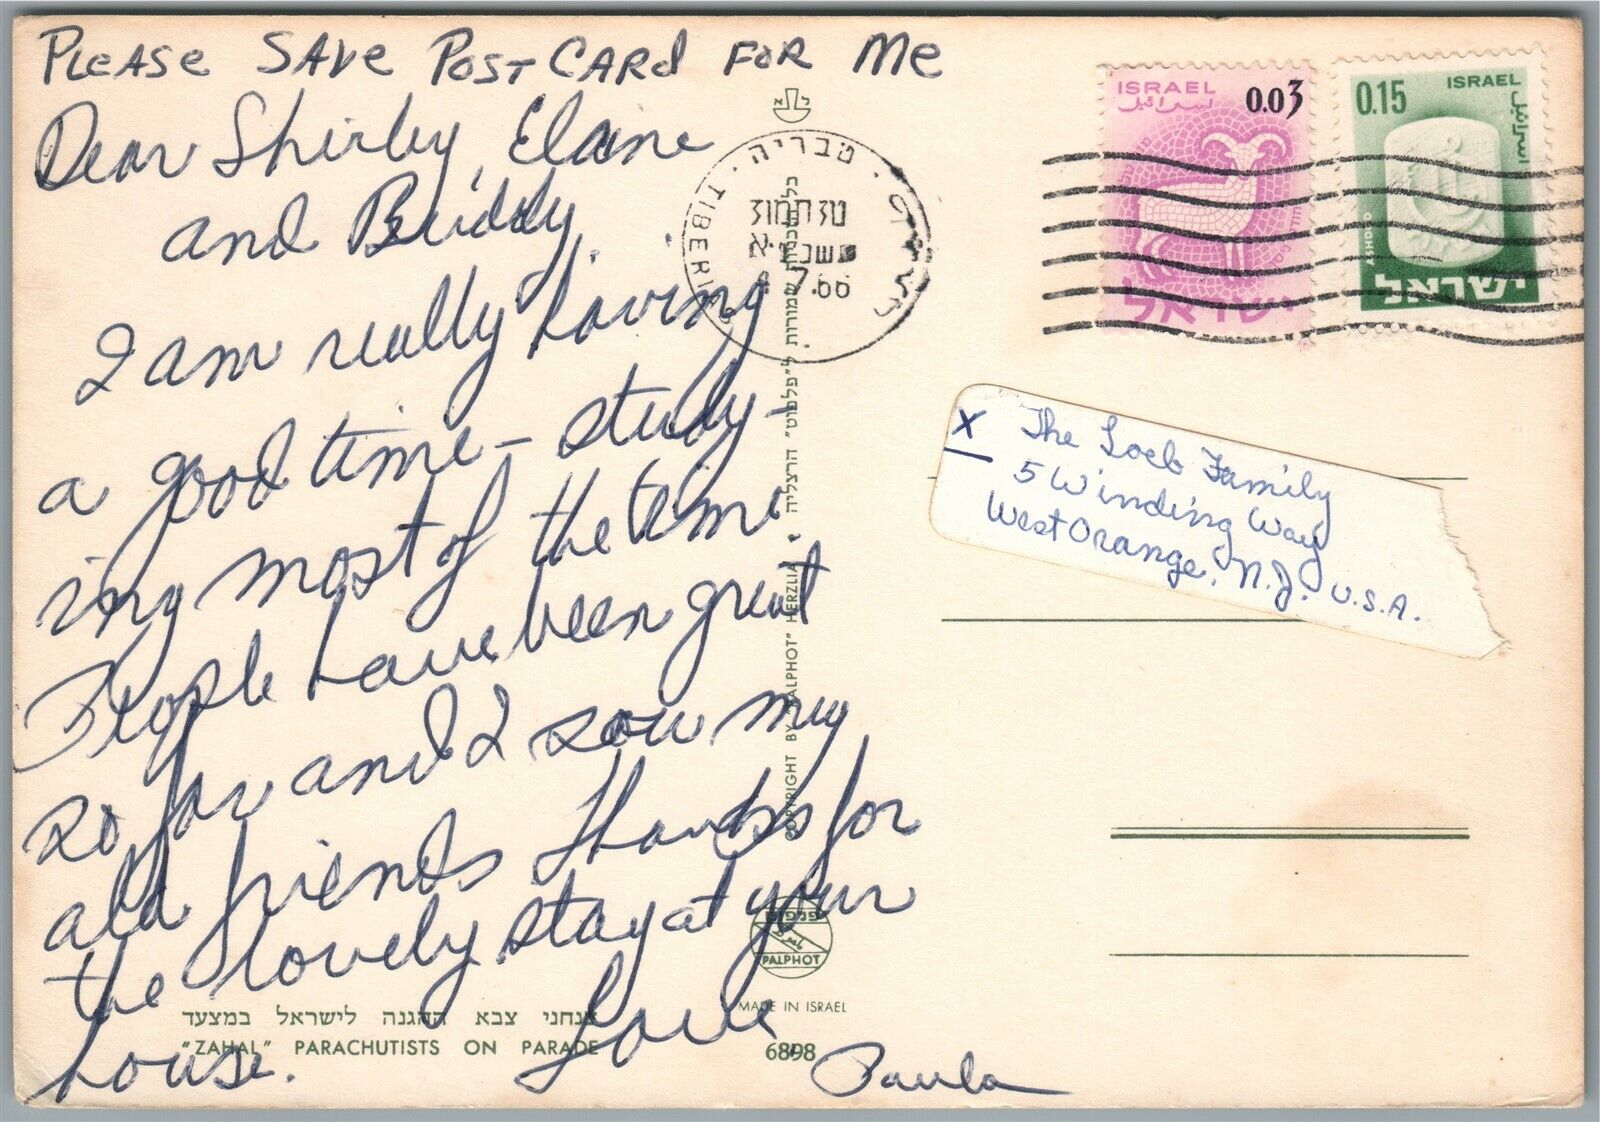 PLEASE SAVE POST CARD FOR ME
Dear Shirley, Elaine
and Buddy.
I am really having
a good time – study-
ing most of the time
People have been great
so far and I saw my
old friends Thanks for
the lovely stay at your
house.
Love
Paula
ISRAEL
0.03
ישראל
0.15
ISRAEL
ASHDOD
ישראל
טבריה
TIBERIAS
טז תמוז
7.66
X The Loeb Family
5 Winding Way
West Orange, N.J. U.S.A.
כל הזכויות שמורות ל"פלפוט" הרצליה • COPYRIGHT BY "PALPHOT" HERZLIA
פלפוט
PALPHOT
MADE IN ISRAEL
6898
צנחני צבא ההגנה לישראל במצעד
"ZAHAL" PARACHUTISTS ON PARADE